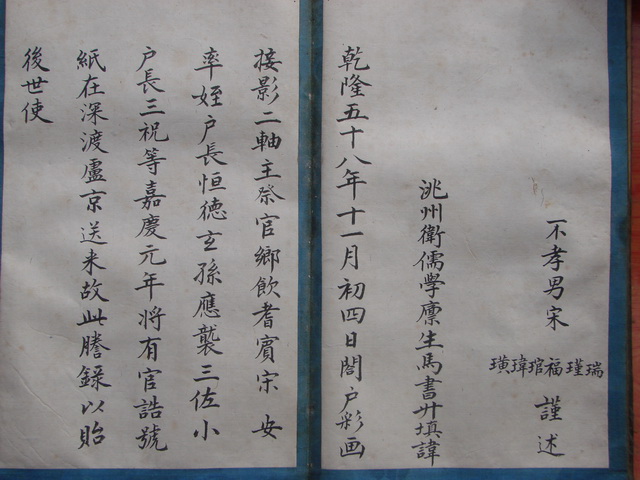 不孝男宋
瑞瑾福琯瑋璜
謹述
洮州衛儒學廩生馬書升填諱
乾隆五十八年十一月初四日閤户彩画
接影二軸主祭官鄉飲耆賓宋 安
率姪户長恒德玄孫應襲三佐小
户長三祝等嘉慶元年將有官誥號
紙在深渡盧京送来故此謄錄以貽
後世使